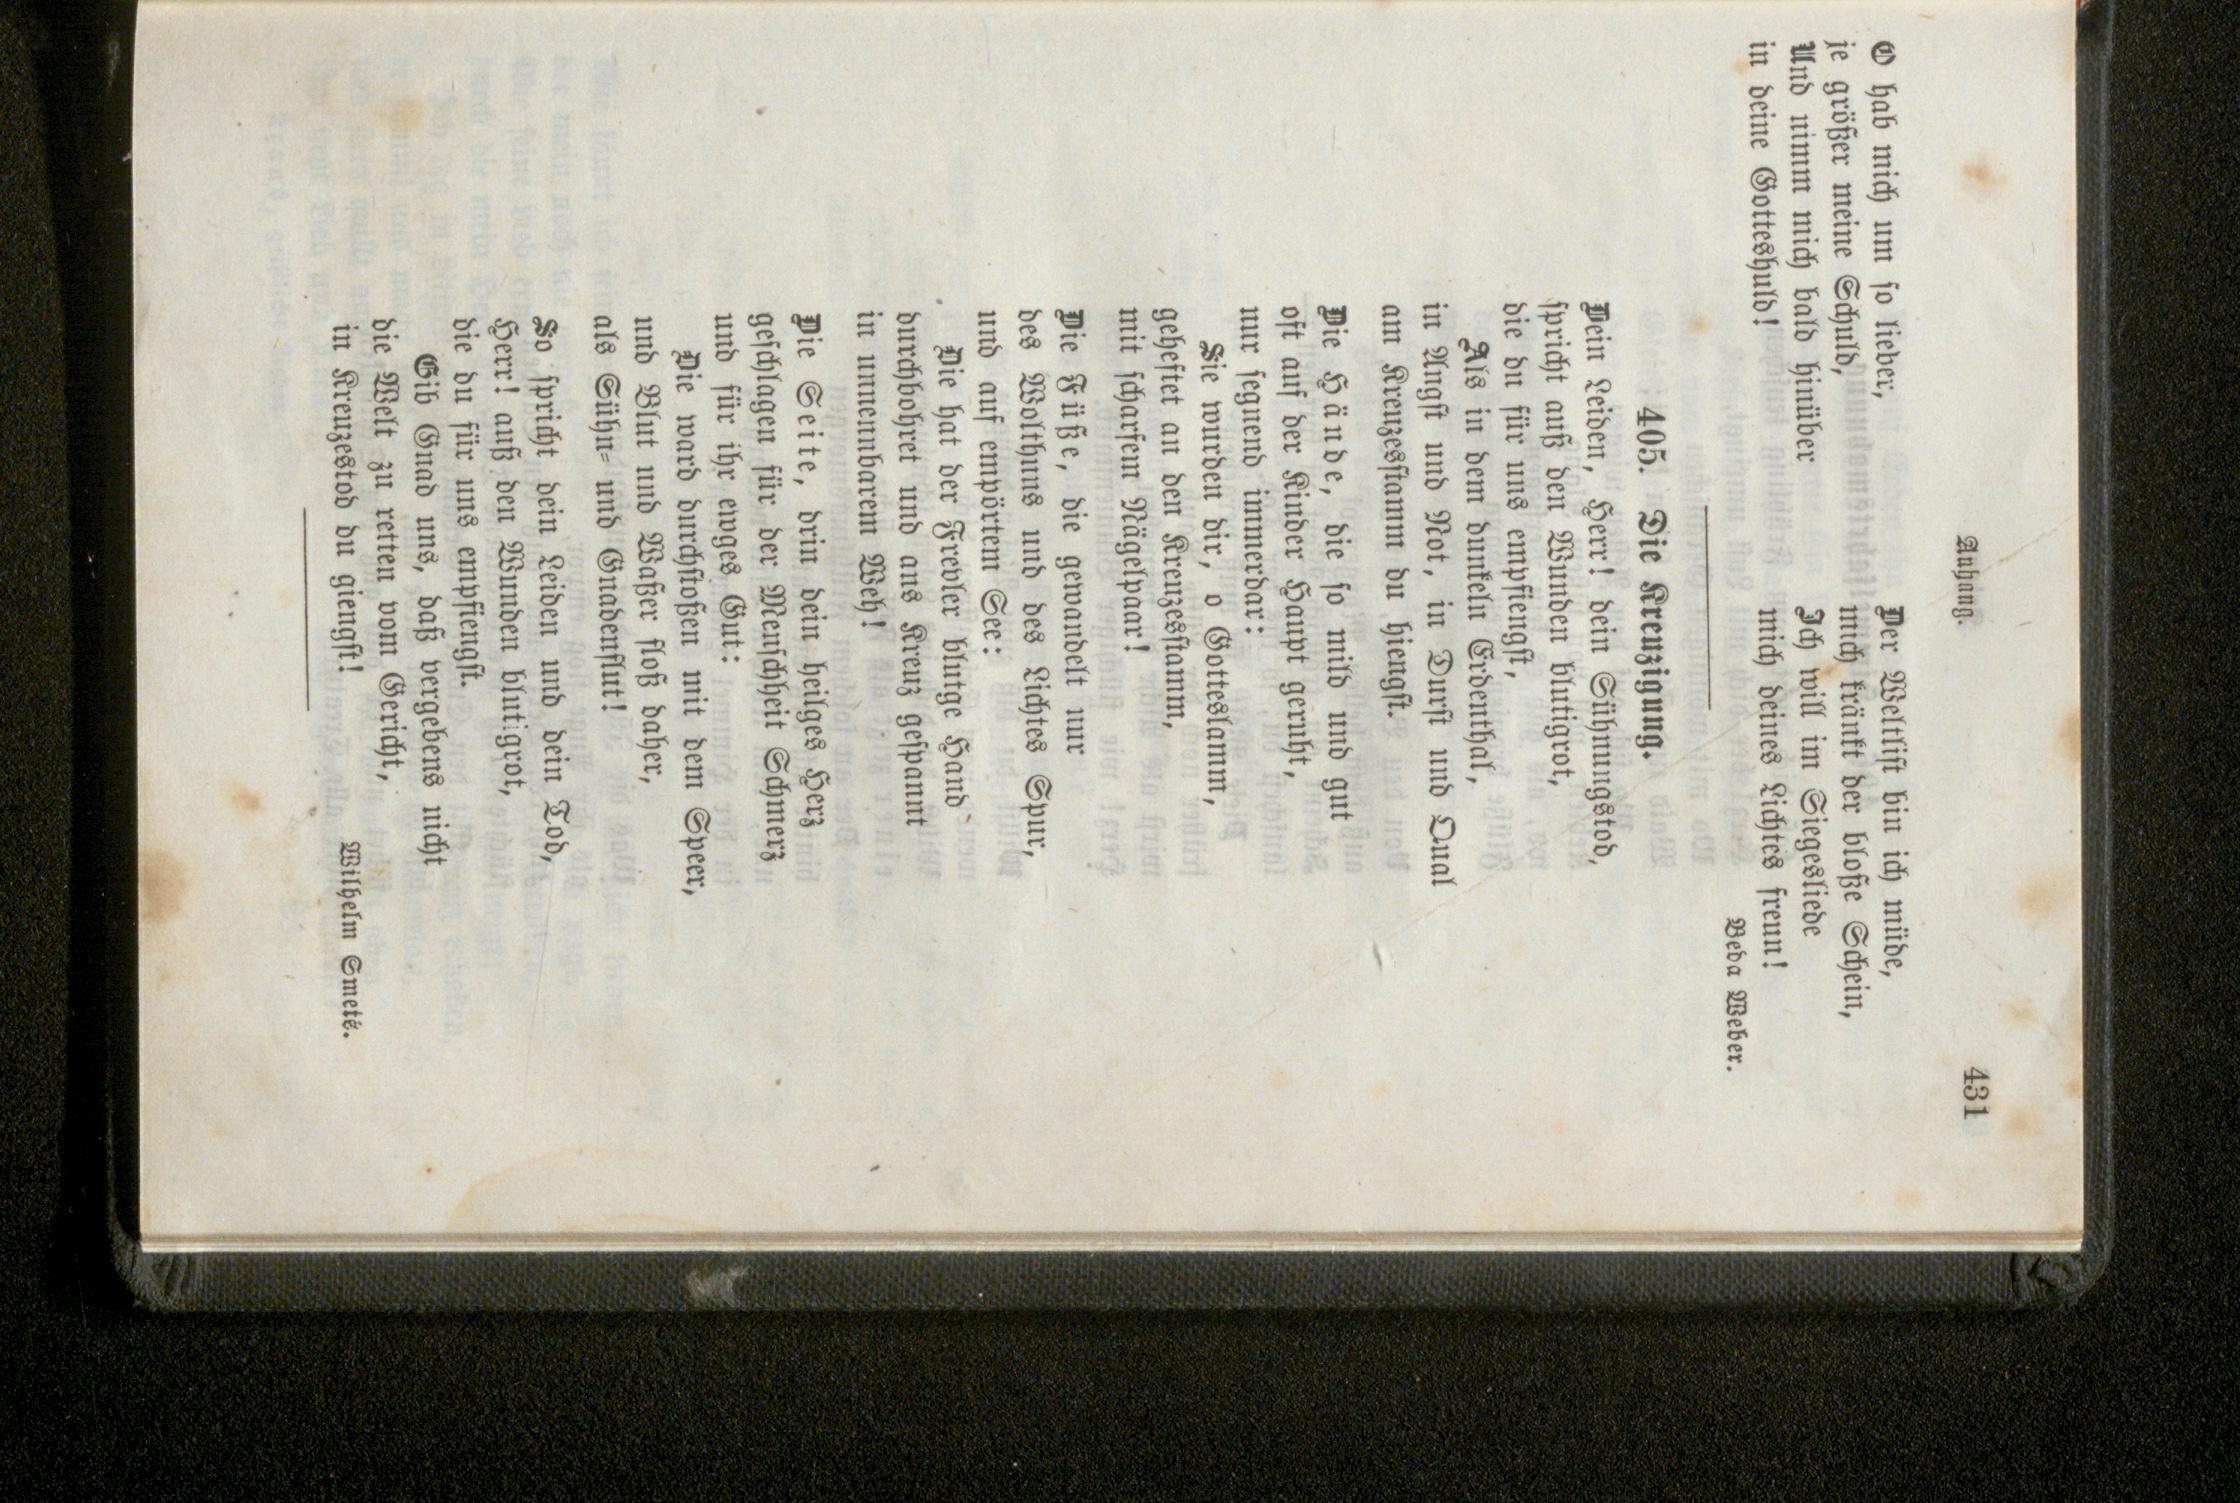 Anhang. 431
O hab mich um so lieber,
je größer meine Schuld,
Und nimm mich bald hinüber
in deine Gotteshuld!
Der Weltlist bin ich müde,
mich kränkt der bloße Schein,
Ich will im Siegesliede
mich deines Lichtes freun!
Beda Weber.
405. Die Kreuzigung.
Dein Leiden, Herr! dein Sühnungstod,
spricht auß den Wunden blutigrot,
die du für uns empfiengst,
Als in dem dunkeln Erdenthal,
in Angst und Not, in Durst und Qual
am Kreuzesstamm du hiengst.
Die Hände, die so mild und gut
oft auf der Kinder Haupt geruht,
nur segnend immerdar:
Sie wurden dir, o Gotteslamm,
geheftet an den Kreuzesstamm,
mit scharfem Nägelpaar!
Die Füße, die gewandelt nur
des Wolthuns und des Lichtes Spur,
und auf empörtem See:
Die hat der Frevler blutge Hand
durchbohret und ans Kreuz gespannt
in unnennbarem Weh!
Die Seite, drin dein heilges Herz
geschlagen für der Menschheit Schmerz
und für ihr ewges Gut:
Die ward durchstoßen mit dem Speer,
und Blut und Waßer floß daher,
als Sühn- und Gnadenflut!
So spricht dein Leiden und dein Tod,
Herr! auß den Wunden blutigrot,
die du für uns empfiengst.
Gib Gnad uns, daß vergebens nicht
die Welt zu retten vom Gericht,
in Kreuzestod du giengst!
Wilhelm Smets.